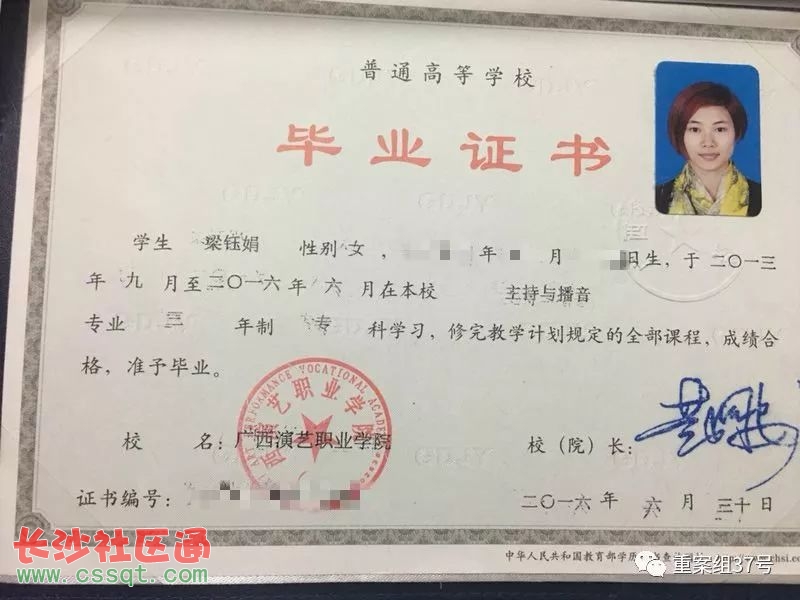 普通高等学校
毕业证书
学生 梁钰娟 性别 女, 年 月 日生, 于二〇一三
年 九 月至二〇一六年 六 月在本校 主持与播音
专业 三 年制 专 科学习, 修完教学计划规定的全部课程, 成绩合
格, 准予毕业。
校 名: 广西演艺职业学院 校(院)长:
证书编号: 二〇一六年 六 月 三十日
中华人民共和国教育部学历
长沙社区通
www.cssqt.com
重案组37号